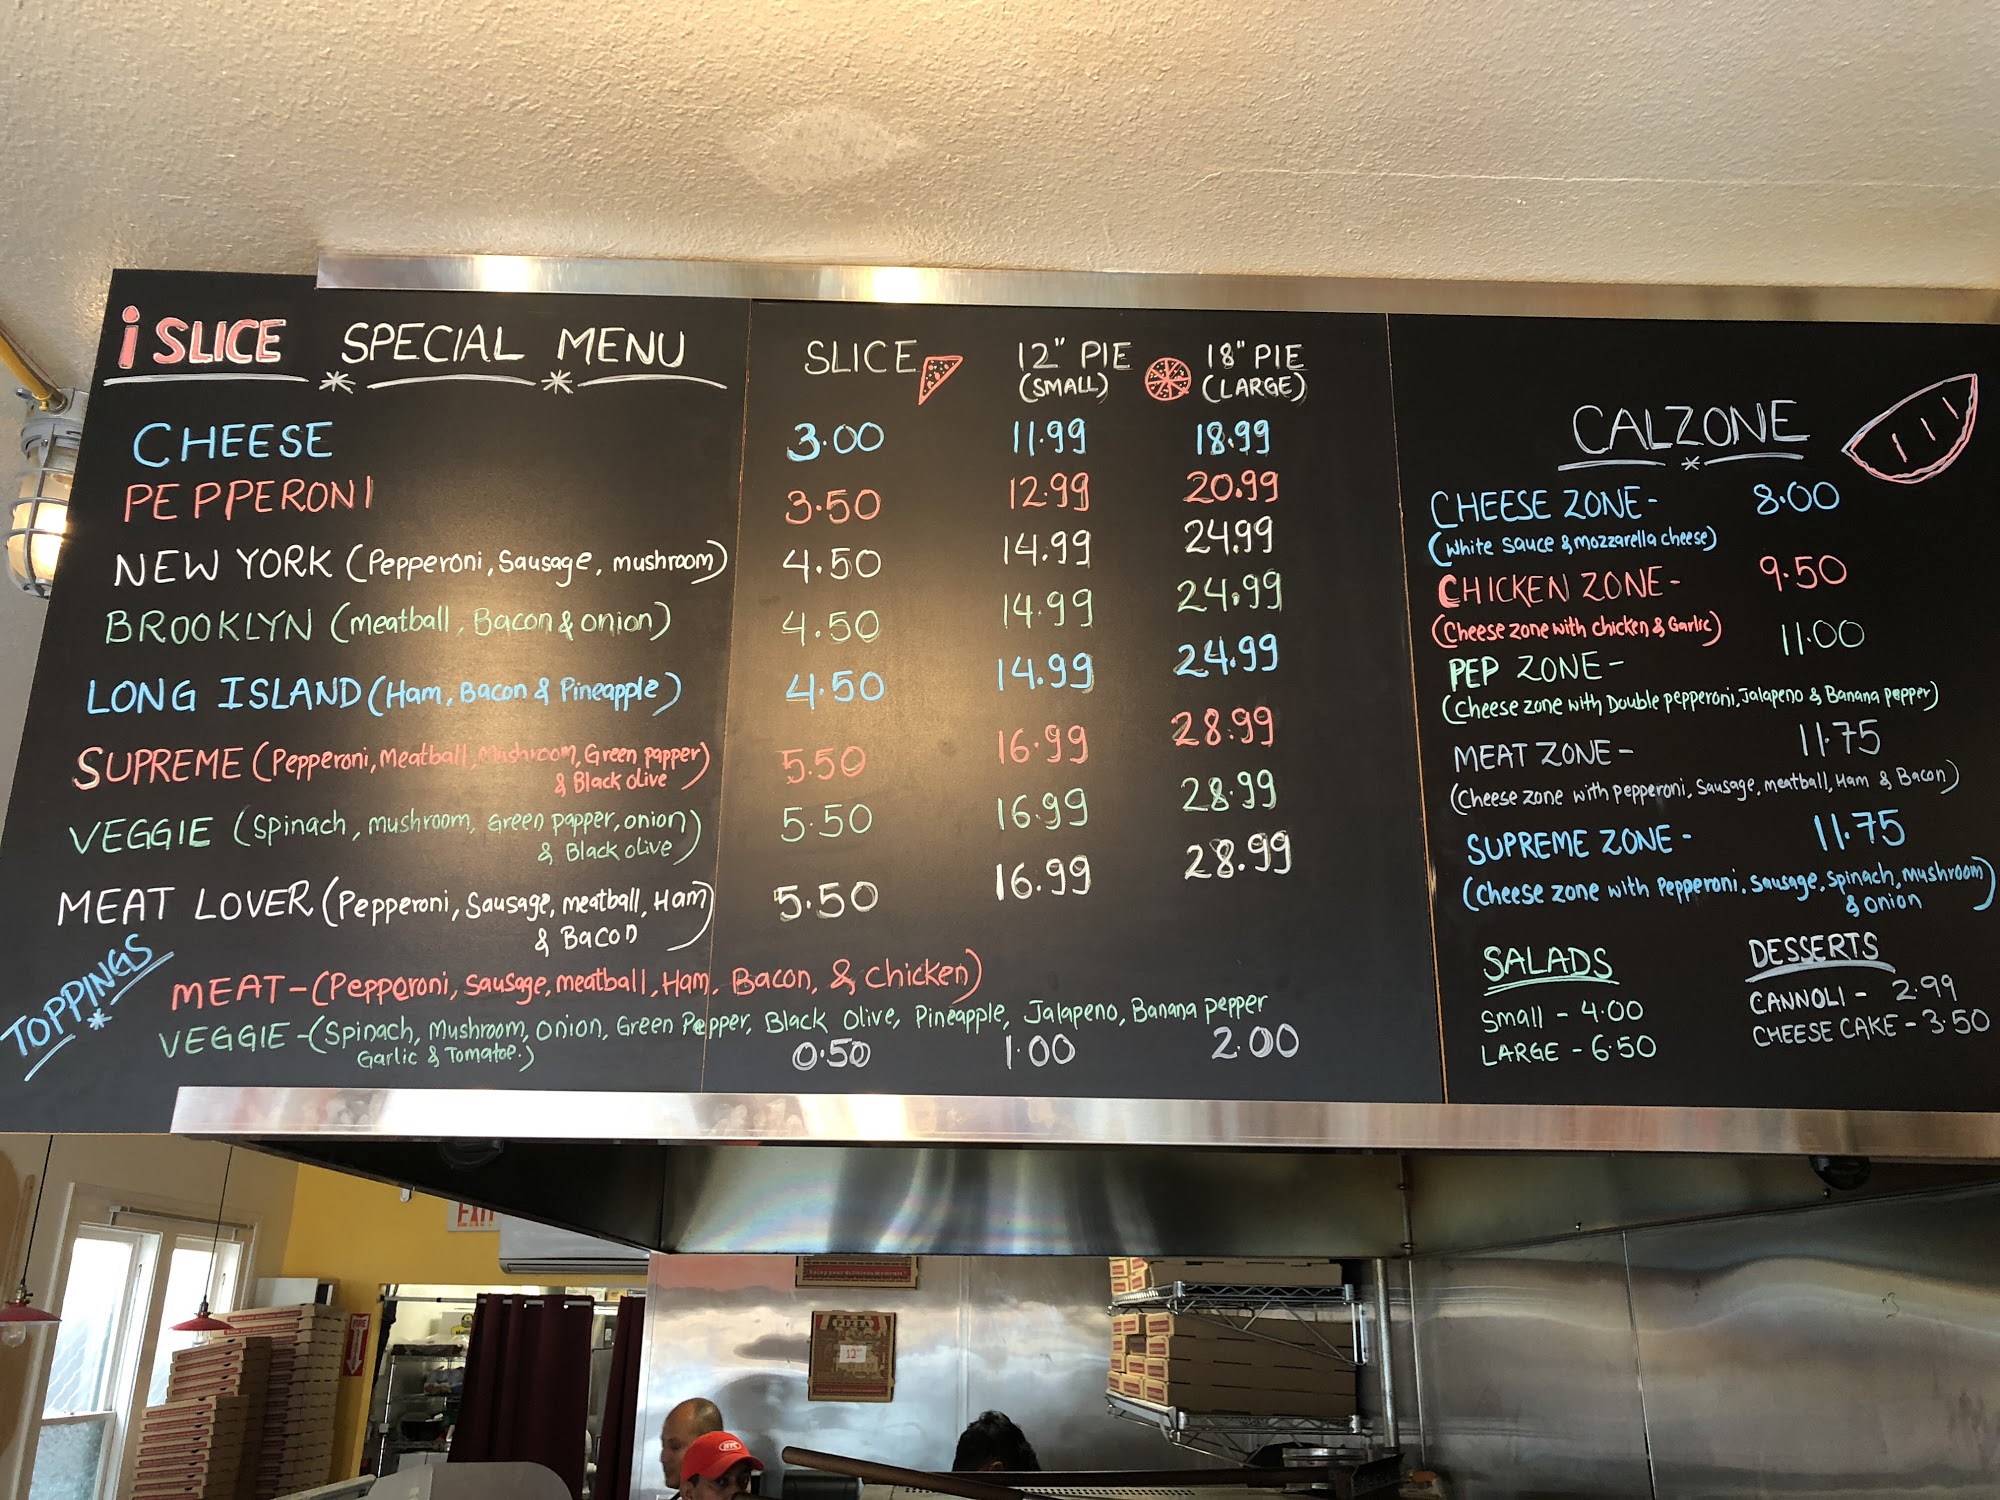 i SLICE SPECIAL MENU
SLICE 12" PIE 18" PIE
(SMALL) (LARGE)
CHEESE 3.00 11.99 18.99
PEPPERONI 3.50 12.99 20.99
NEW YORK (Pepperoni, Sausage, mushroom) 4.50 14.99 24.99
BROOKLYN (meatball, Bacon & onion) 4.50 14.99 24.99
LONG ISLAND (Ham, Bacon & Pineapple) 4.50 14.99 24.99
SUPREME (Pepperoni, Meatball, Mushroom, Green papper 5.50 16.99 28.99
& Black olive)
VEGGIE (Spinach, mushroom, Green papper, onion 5.50 16.99 28.99
& Black olive)
MEAT LOVER (Pepperoni, Sausage, meatball, Ham 5.50 16.99 28.99
& Bacon)
TOPPINGS
MEAT - (Pepperoni, Sausage, meatball, Ham, Bacon, & chicken)
VEGGIE - (Spinach, Mushroom, Onion, Green Pepper, Black Olive, Pineapple, Jalapeno, Banana pepper
Garlic & Tomatoe.) 0.50 1.00 2.00
CALZONE
CHEESE ZONE - 8.00
(White sauce & mozzarella cheese)
CHICKEN ZONE - 9.50
(Cheese zone with chicken & Garlic)
PEP ZONE - 11.00
(Cheese zone with Double pepperoni, Jalapeno & Banana pepper)
MEAT ZONE - 11.75
(Cheese zone with pepperoni, Sausage, meatball, Ham & Bacon)
SUPREME ZONE - 11.75
(Cheese zone with Pepperoni, Sausage, Spinach, Mushroom
& onion)
SALADS
Small - 4.00
LARGE - 6.50
DESSERTS
CANNOLI - 2.99
CHEESE CAKE - 3.50
EXIT
FIRE
PIZZA
12"